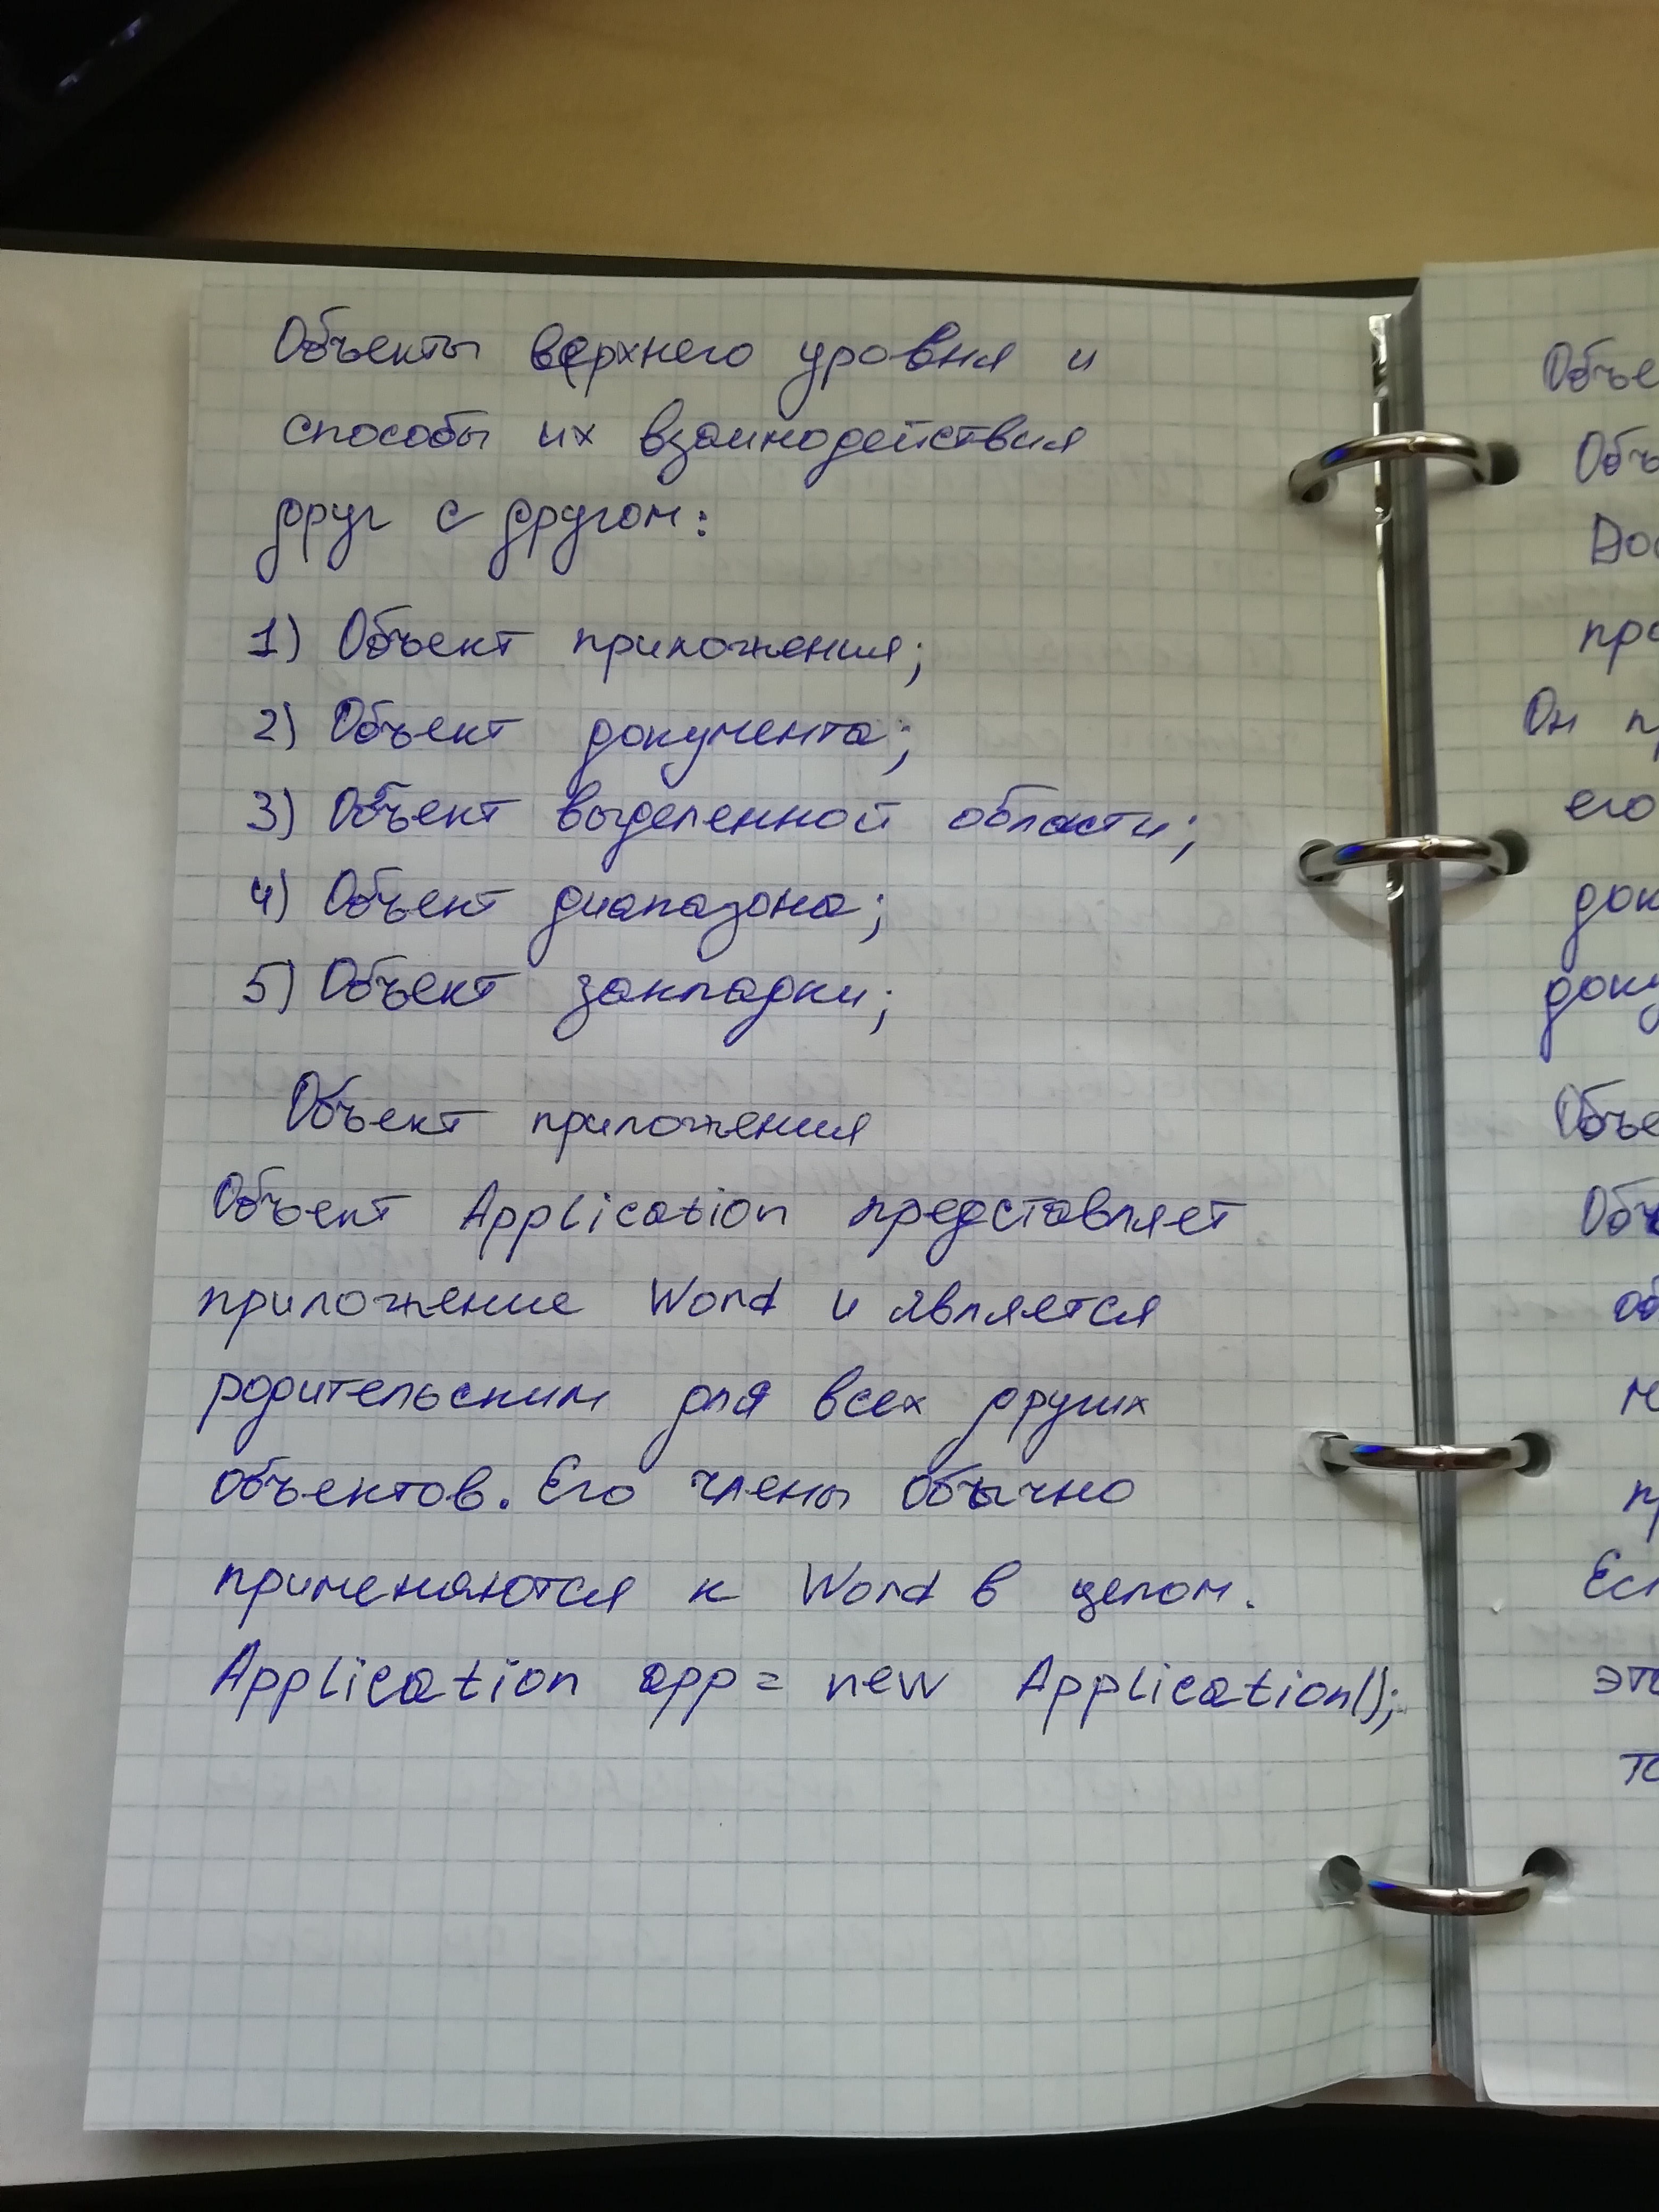 Объекты верхнего уровня и
способы их взаимодействия
друг с другом:
1) Объект приложения;
2) Объект документа;
3) Объект выделенной области;
4) Объект диапазона;
5) Объект закладки;
Объект приложения
Объект Application представляет
приложение Word и является
родительским для всех других
объектов. Его члены обычно
применяются к Word в целом.
Application app = new Application();
Объе
Объ
Дос
про
Он п
его
док
доку
Объе
Объ
об
м
п
Есл
это
то